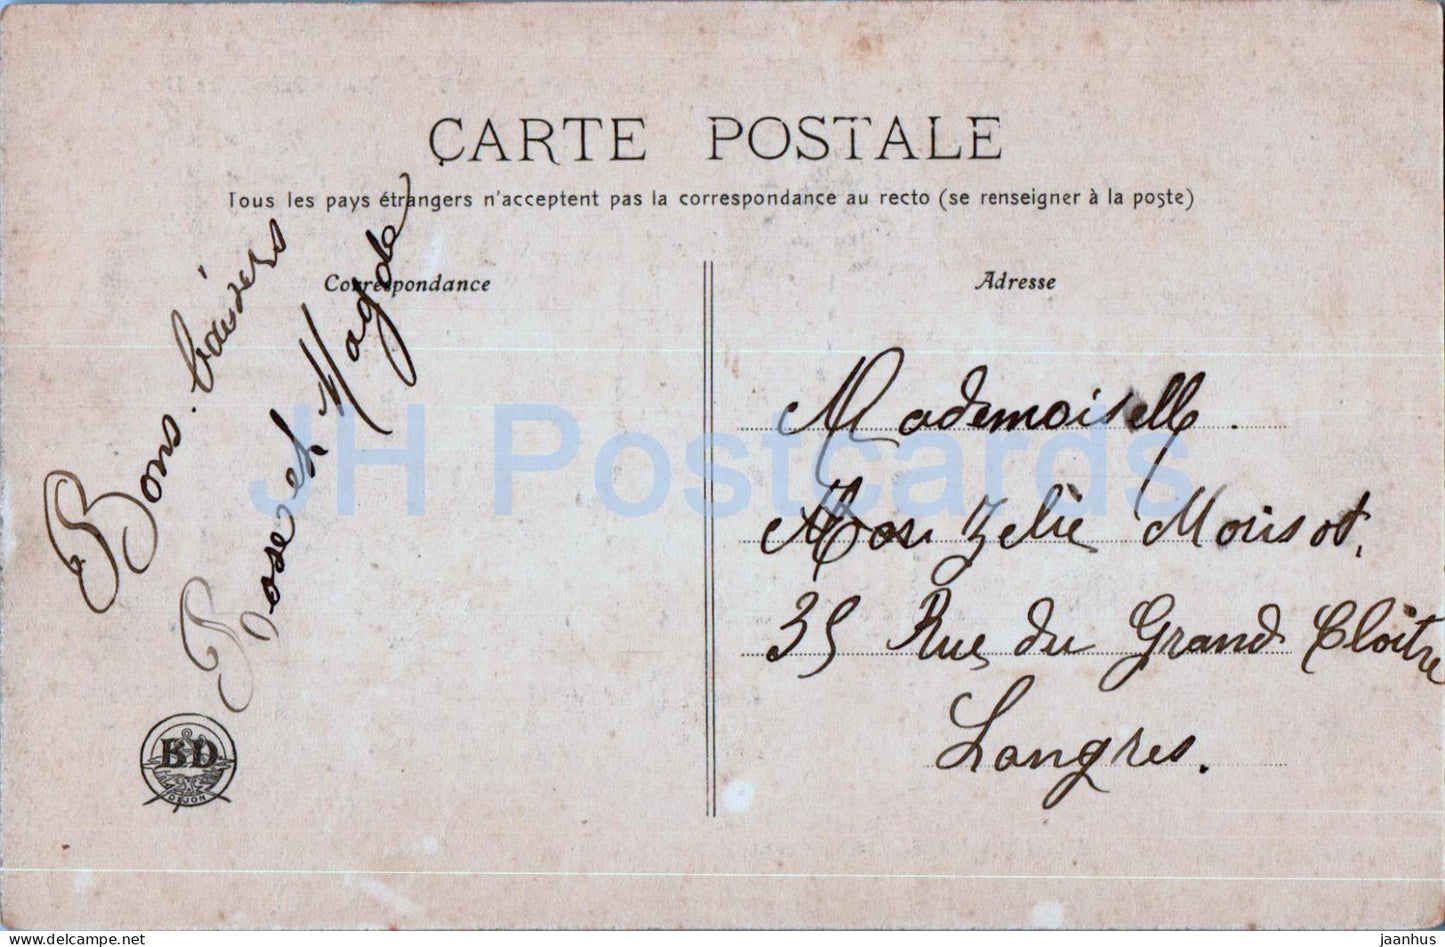 CARTE POSTALE
Tous les pays étrangers n'acceptent pas la correspondance au recto (se renseigner à la poste)
Correspondance
Adresse
Bons baisers
Rose et Magde
Mademoiselle
Zélie Morisot,
35 Rue du Grand Cloître
Langres.
BD
DIJON
JH Postcards
www.delcampe.net
jaanhus